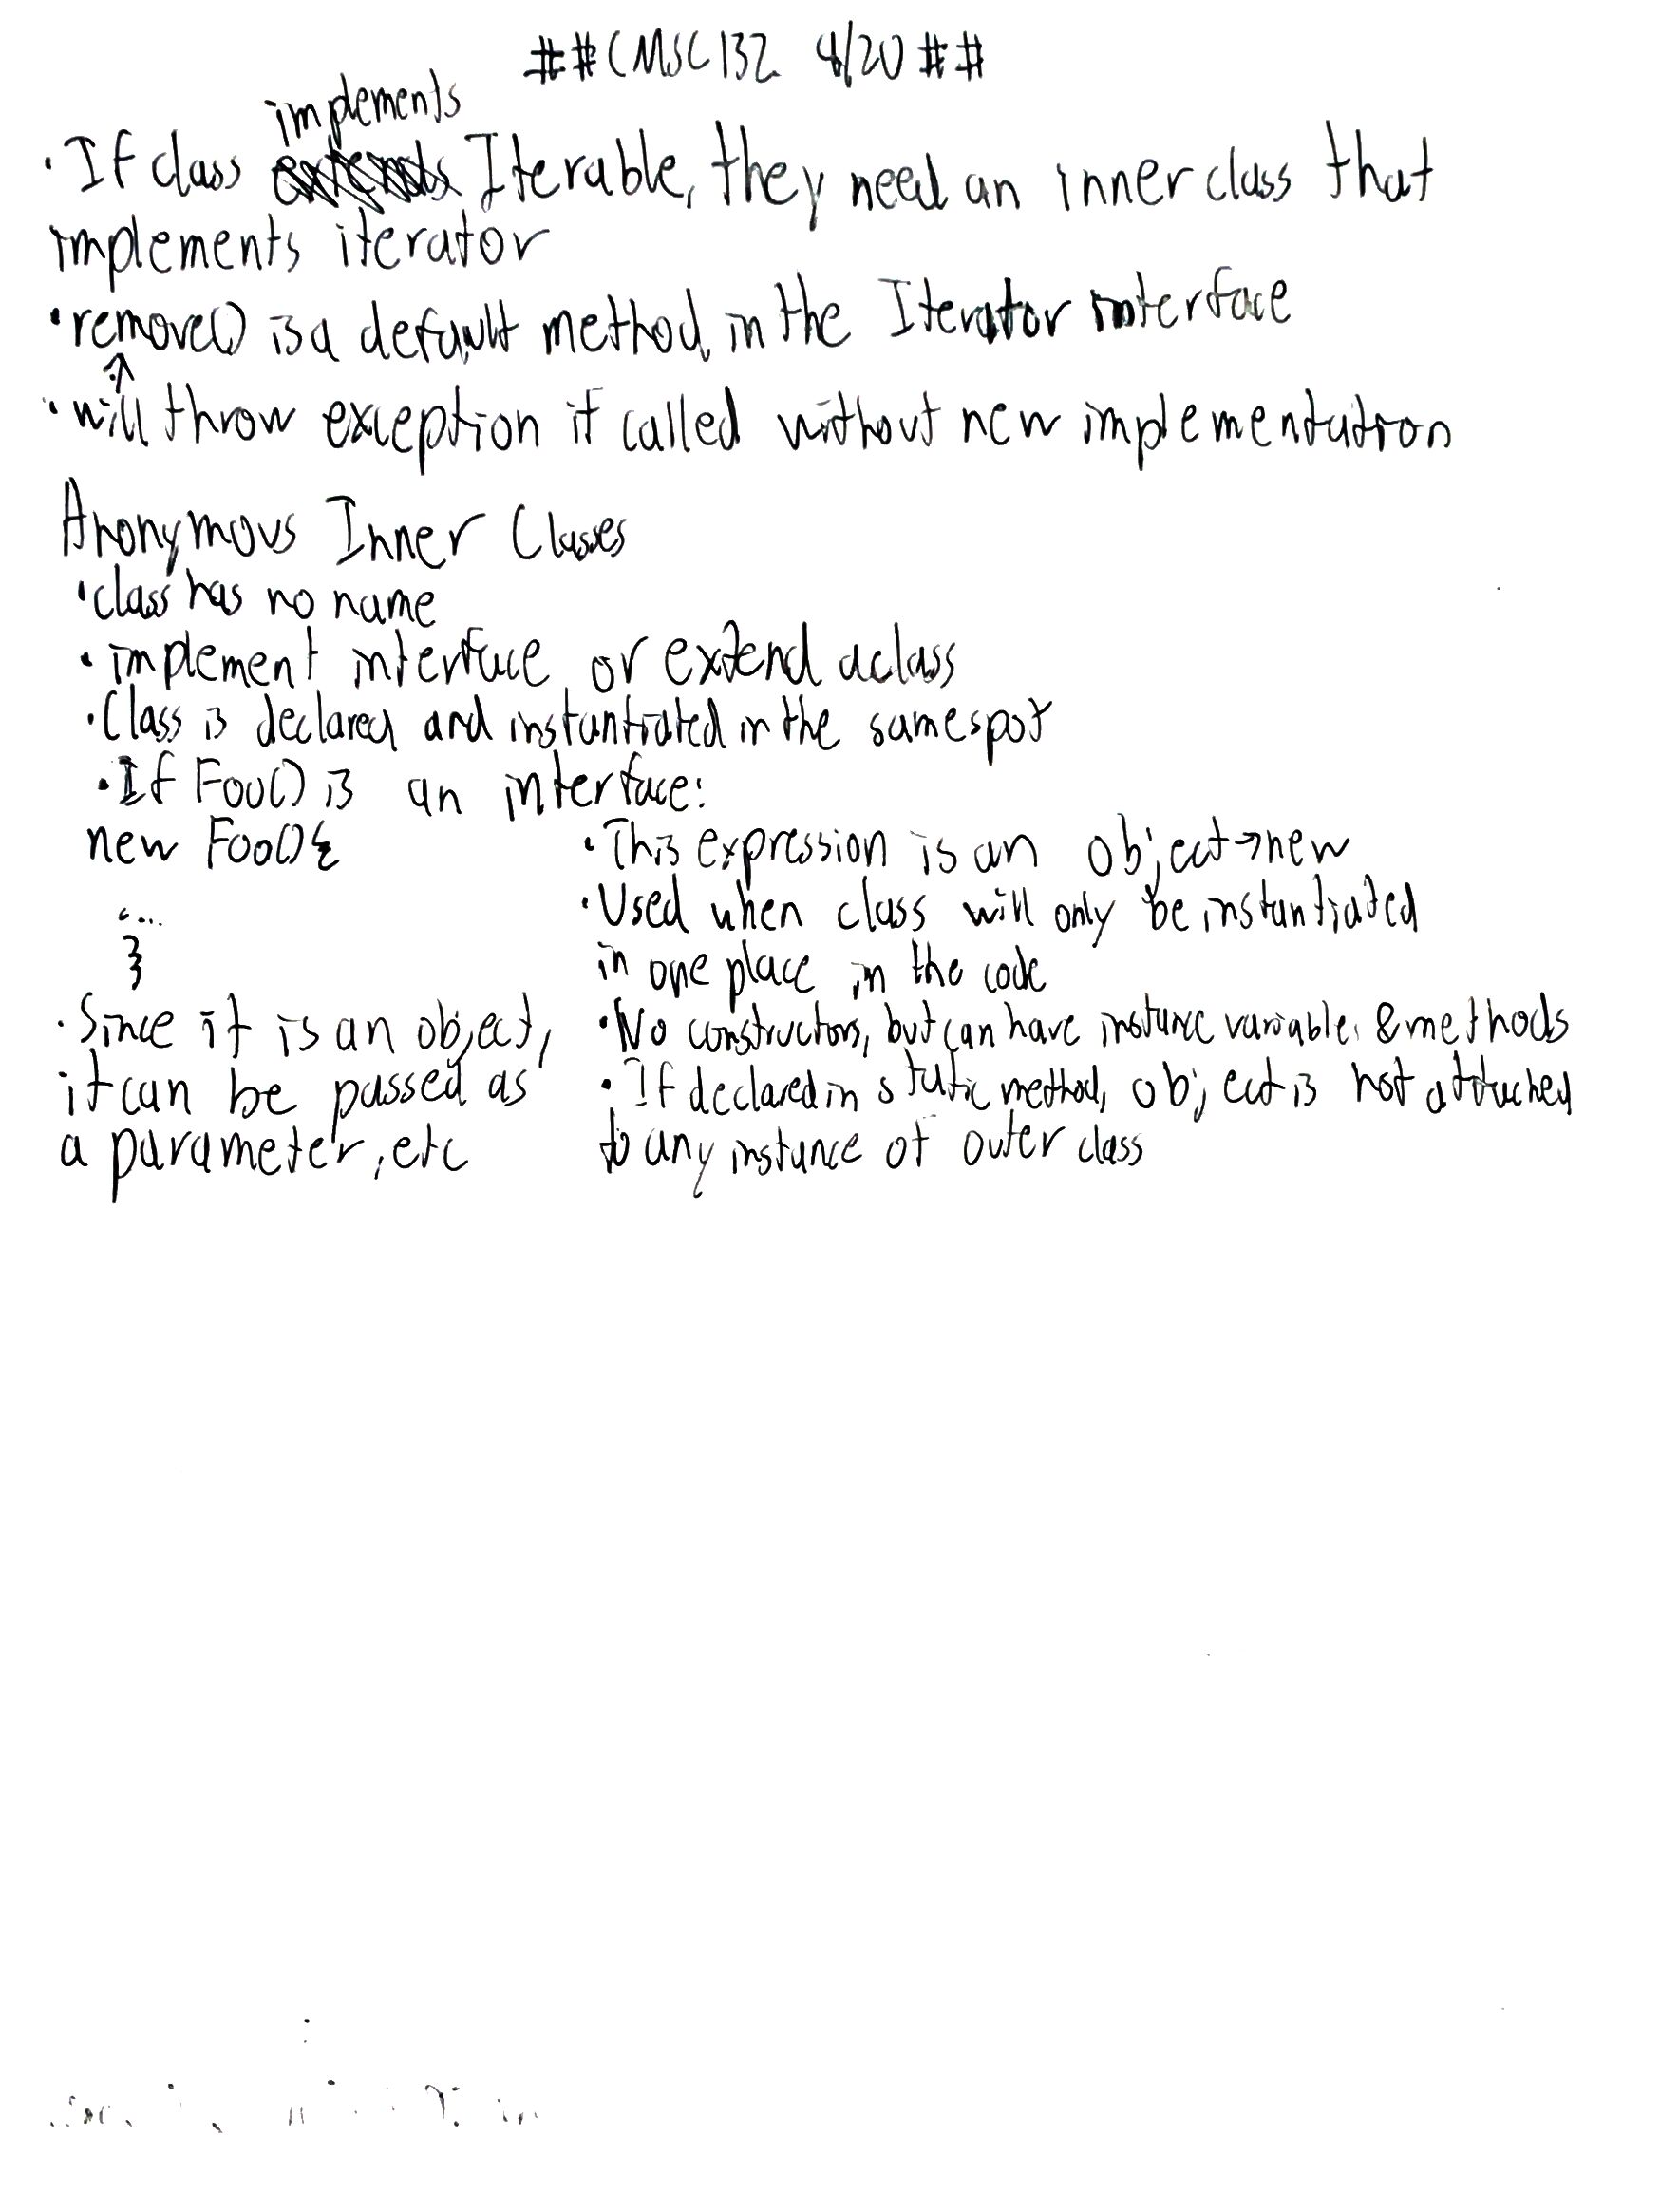 ##CMSC132 4/20##
implements
·If class extends Iterable, they need an inner class that
implements iterator
·remove() is a default method in the Iterator interface
↑
·will throw exception if called without new implementation
Anonymous Inner Classes
·class has no name
·implement interface or extend a class
·Class is declared and instantiated in the same spot
·If Foo() is an interface:
new Foo(){
...
}
·Since it is an object,
it can be passed as
a parameter, etc
·This expression is an object→new
·Used when class will only be instantiated
in one place in the code
·No constructors, but can have instance variables & methods
·If declared in static method, object is not attached
to any instance of outer class